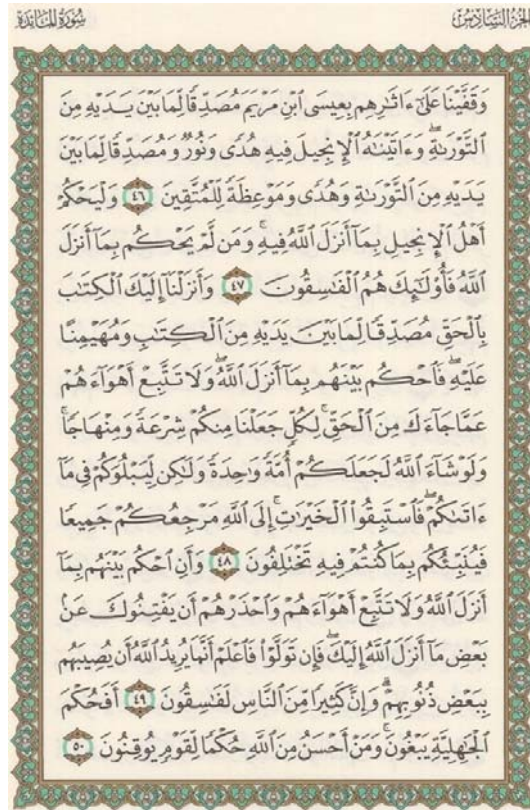 الجزء السادس
سورة المائدة
وَقَفَّيْنَا عَلَىٰٓ ءَاثَٰرِهِم بِعِيسَى ٱبْنِ مَرْيَمَ مُصَدِّقًا لِّمَا بَيْنَ يَدَيْهِ مِنَ
ٱلتَّوْرَىٰةِۖ وَءَاتَيْنَٰهُ ٱلْإِنجِيلَ فِيهِ هُدًى وَنُورٌ وَمُصَدِّقًا لِّمَا بَيْنَ
يَدَيْهِ مِنَ ٱلتَّوْرَىٰةِ وَهُدًى وَمَوْعِظَةً لِّلْمُتَّقِينَ ٤٦ وَلْيَحْكُمْ
أَهْلُ ٱلْإِنجِيلِ بِمَآ أَنزَلَ ٱللَّهُ فِيهِۚ وَمَن لَّمْ يَحْكُم بِمَآ أَنزَلَ
ٱللَّهُ فَأُو۟لَٰٓئِكَ هُمُ ٱلْفَٰسِقُونَ ٤٧ وَأَنزَلْنَآ إِلَيْكَ ٱلْكِتَٰبَ
بِٱلْحَقِّ مُصَدِّقًا لِّمَا بَيْنَ يَدَيْهِ مِنَ ٱلْكِتَٰبِ وَمُهَيْمِنًا
عَلَيْهِۖ فَٱحْكُم بَيْنَهُم بِمَآ أَنزَلَ ٱللَّهُۖ وَلَا تَتَّبِعْ أَهْوَآءَهُمْ
عَمَّا جَآءَكَ مِنَ ٱلْحَقِّۚ لِكُلٍّ جَعَلْنَا مِنكُمْ شِرْعَةً وَمِنْهَاجًاۚ
وَلَوْ شَآءَ ٱللَّهُ لَجَعَلَكُمْ أُمَّةً وَٰحِدَةً وَلَٰكِن لِّيَبْلُوَكُمْ فِى مَآ
ءَاتَىٰكُمْۖ فَٱسْتَبِقُوا۟ ٱلْخَيْرَٰتِۚ إِلَى ٱللَّهِ مَرْجِعُكُمْ جَمِيعًا
فَيُنَبِّئُكُم بِمَا كُنتُمْ فِيهِ تَخْتَلِفُونَ ٤٨ وَأَنِ ٱحْكُم بَيْنَهُم بِمَآ
أَنزَلَ ٱللَّهُ وَلَا تَتَّبِعْ أَهْوَآءَهُمْ وَٱحْذَرْهُمْ أَن يَفْتِنُوكَ عَنۢ
بَعْضِ مَآ أَنزَلَ ٱللَّهُ إِلَيْكَۖ فَإِن تَوَلَّوْا۟ فَٱعْلَمْ أَنَّمَا يُرِيدُ ٱللَّهُ أَن يُصِيبَهُم
بِبَعْضِ ذُنُوبِهِمْۗ وَإِنَّ كَثِيرًا مِّنَ ٱلنَّاسِ لَفَٰسِقُونَ ٤٩ أَفَحُكْمَ
ٱلْجَٰهِلِيَّةِ يَبْغُونَۚ وَمَنْ أَحْسَنُ مِنَ ٱللَّهِ حُكْمًا لِّقَوْمٍ يُوقِنُونَ ٥٠